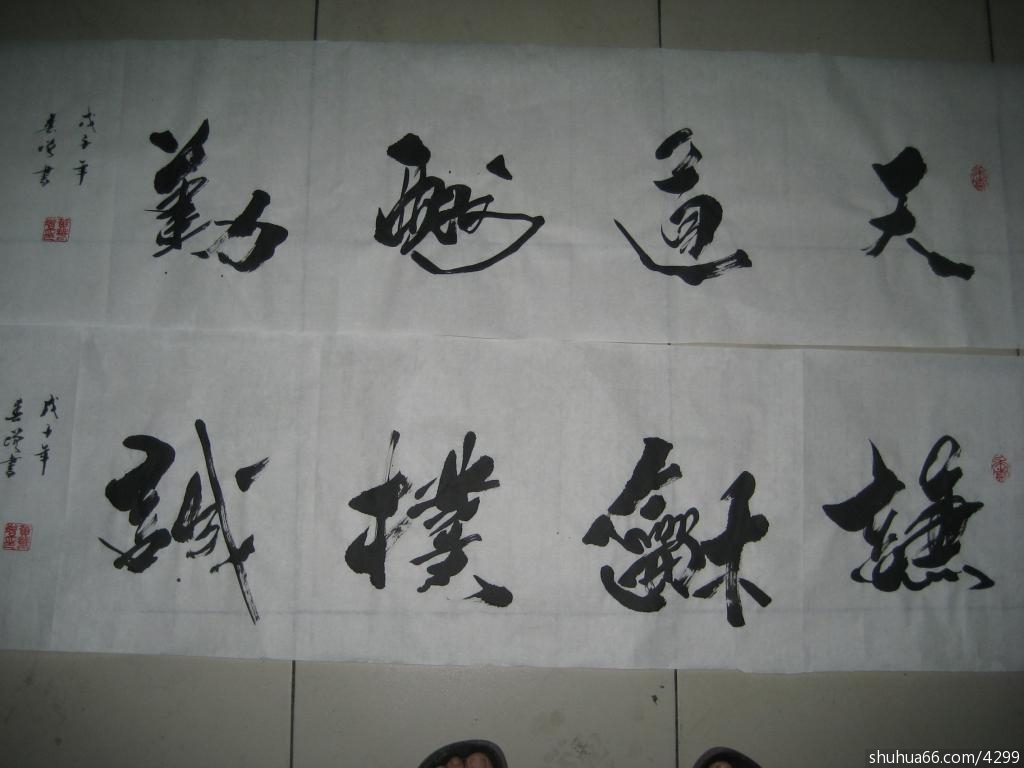 天道酬勤
戊子年
書
謙龢樸誠
戊子年
書
shuhua66.com/4299